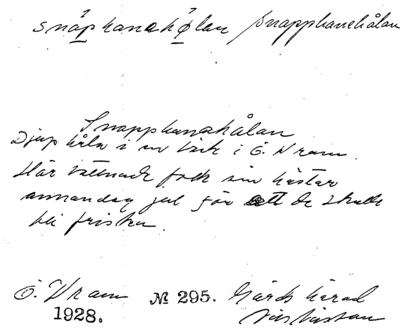 snäphanahǫlan Snapphanehålan
Snapphanehålan
Djup håla i en bäck i Ö. Vram.
Här vattnade folk sin hästar
annandag jul för att de skulle
bli friska.
Ö. Vram № 295. Gärds härad
1928.